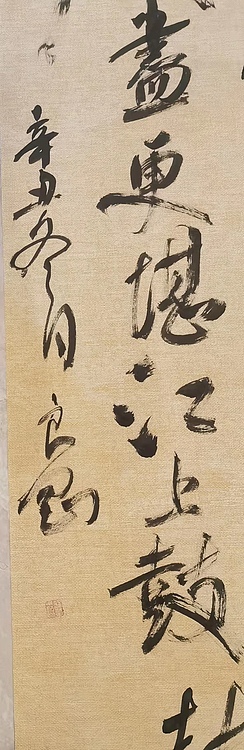 盡更堪江上鼓
辛丑冬月良